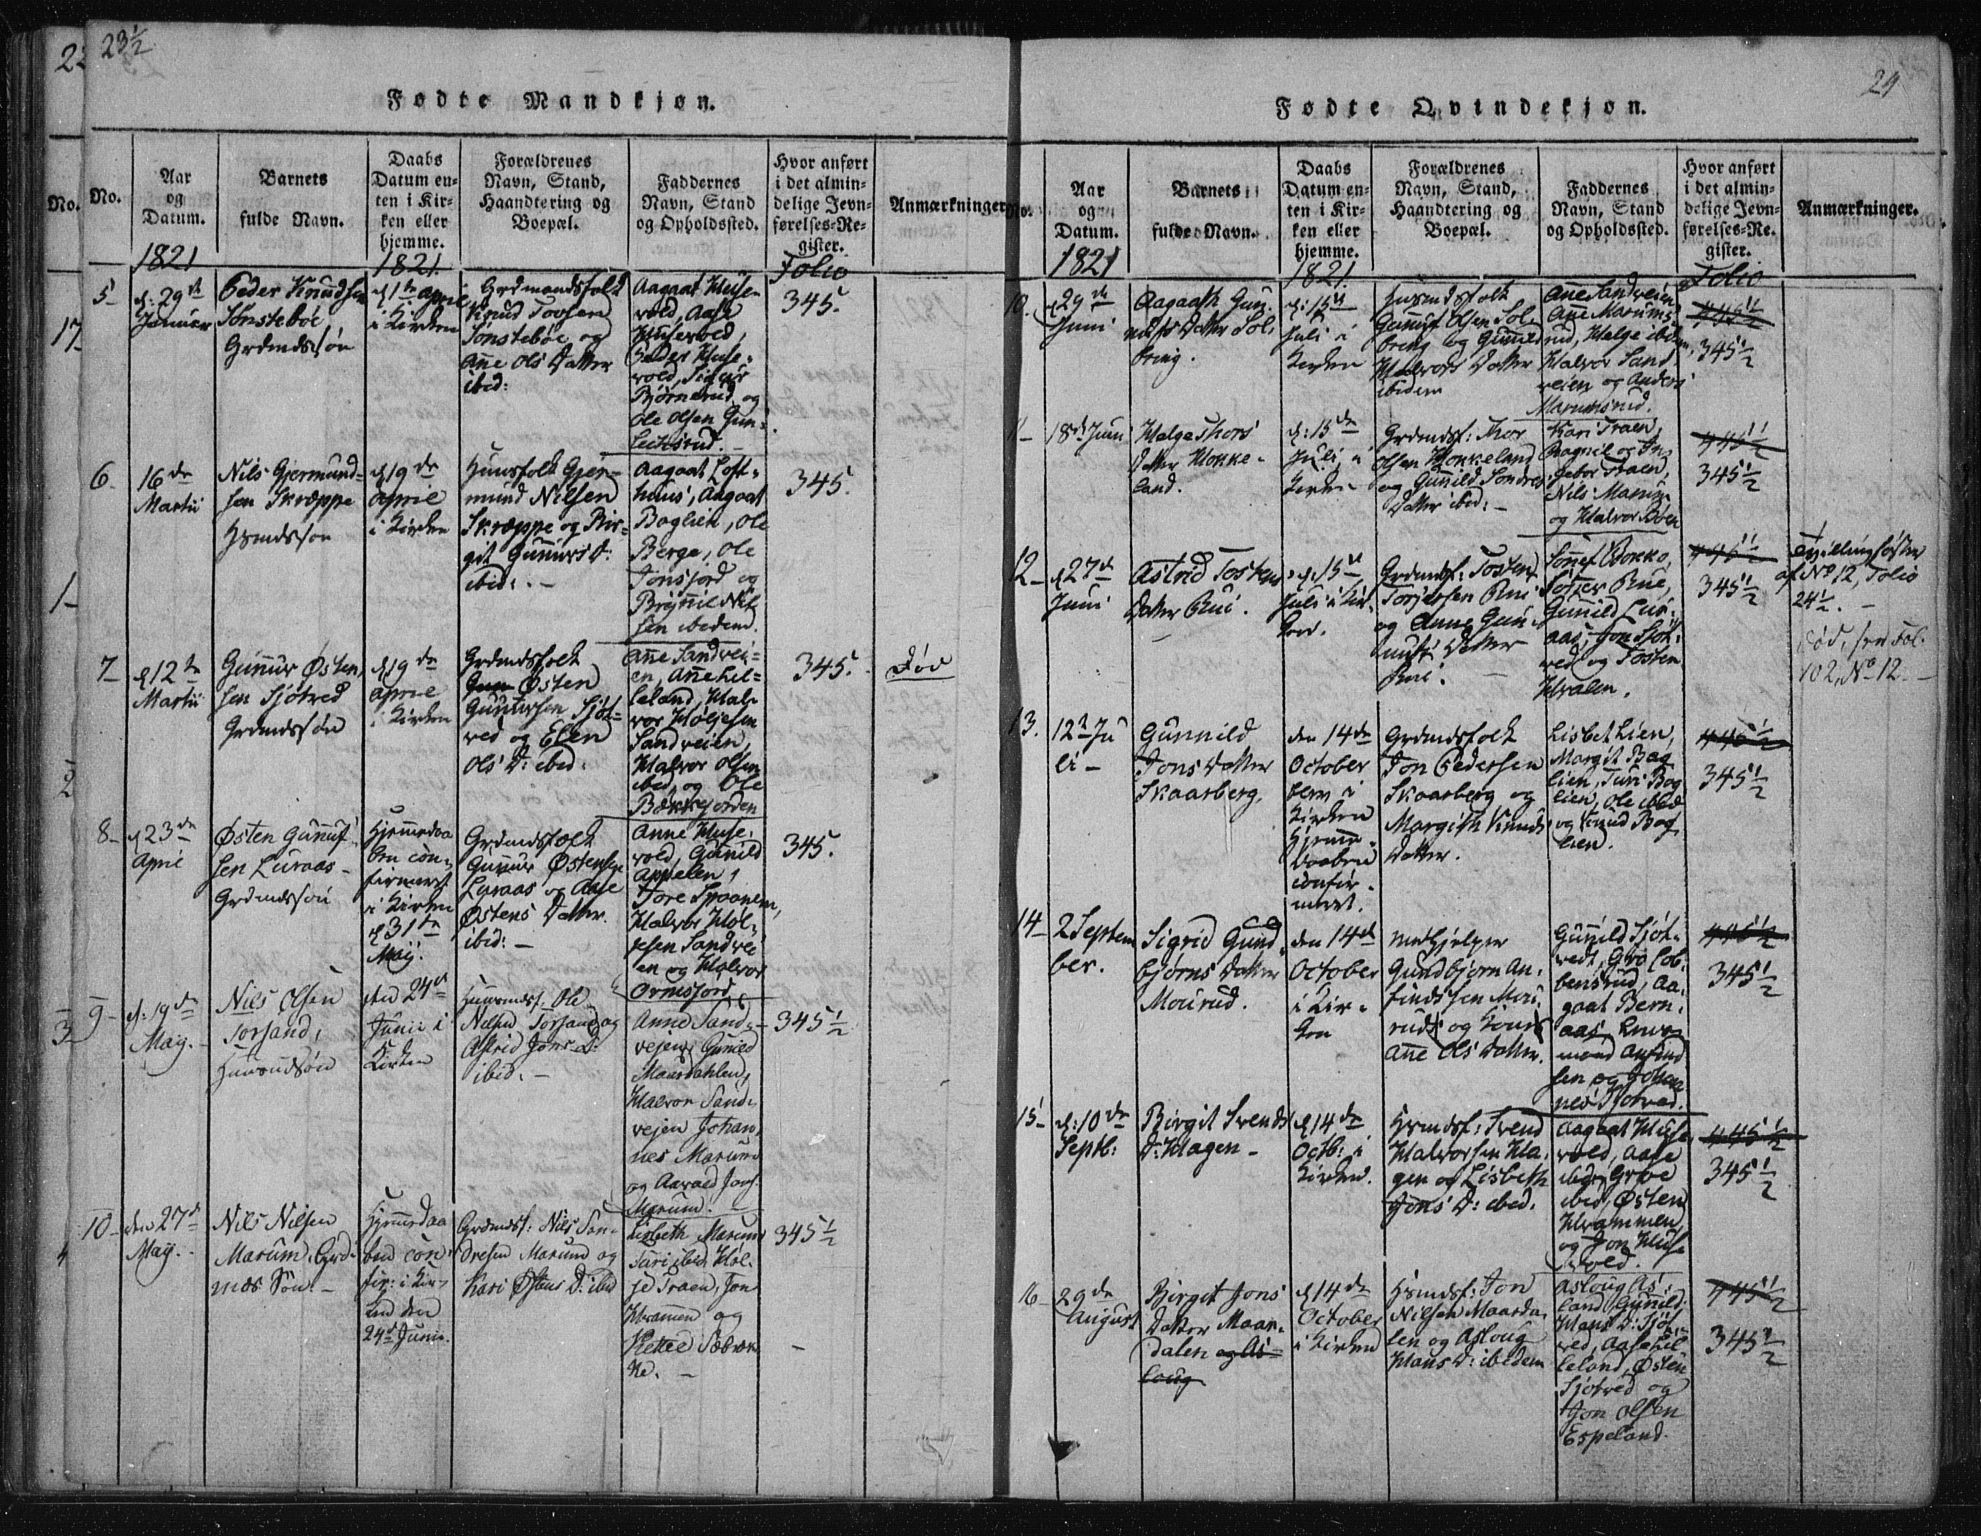 23½
Fødte Mandkjøn.
No.
Aar
og
Datum.
Barnets
fulde Navn.
Daabs
Datum en-
ten i Kir-
ken eller
hjemme.
Forældrenes
Navn, Stand,
Haandtering og
Boepæl.
Faddernes
Navn, Stand
og Opholdssted.
Hvor anført
i det almin-
delige Jevn-
førelses-Re-
gister.
Anmærkninger
1821
1821.
Folio
5-
d: 29de
Januar
Peder Knudsen
Sønstebøe
Grdmdssøn
d 1ste April
i Kirken
Grdmandsfolk
Knud Tovsen
Sønstebøe og
Ane Ols Datter
ibid:
Aagaat Huse-
vold, Aase
Husevold,
Peder Huse-
vold, Sigur
Bjørnerud og
Ole Olsen Gun-
leiksrud.
345.
6-
16de
Martii
Nils Gjermund-
sen Skræppe
Hsmdssøn
d 19de
April
i Kirken
Huusfolk Gjer-
mund Nilsen
Skræppe og Bir-
git Gunurs D:
ibid: -
Aagaat Loft-
huus, Aagaat
Baglien, Ole
Berge, Ole
Jonsjord og
Brynil Nil-
sen ibidem.
345.
7-
d 12te
Martii
Gunur Østen-
sen Sjøtved
Grdmdssøn
d 19de
April
i Kirken
Grdmdsfolk
Østen
Gunursen Sjøt-
ved og Elen
Ols D: ibid:
Ane Sandvei-
en, Ane Lil-
leland, Hal-
vor Høljesen
Sandveien,
Halvor Olsen
ibid, og Ole
Bækkejorden
345.
Død
8-
d 23de
April
Østen Gunuf-
sen Luraas -
Grdmdssøn
Hjemmedaa
ben con-
firmert
i Kirken
d 31te
Maji.
Grdmdsfolk
Gunur Østensen
Luraas og Aase
Østens Datter
ibid: -
Anne Huse-
vold, Gunild
Appelen,
Tore Spaanem,
Halvor Høl-
jesen Sandvei
en og Halvor
Ormsjord
345.
9-
d: 19de
Maji.
Nils Olsen
Torsand,
Huusmdssøn
den 24de
Junii i
Kirken
Huusmdsf. Ole
Nilsen Torsand og
Astrid Jons D:
ibid: -
Anne Sand-
vejen, Gunild
Maardahlen,
Halvor Sand-
vejen Johan-
nes Marum
og Aavald Jons.
Marum.
345½
10-
den 27de
Maji.
Nils Nilsen
Marum, Grd-
mds Søn -
Hjemmedaa
ben con-
fir: i Kir-
ken den
24de Junii.
Grdmdsf: Nils San-
dresen Marum og
Kari Østens D: ibid
Lisbeth Marum
Turi ibid, Høl-
je Traen, Jon
Kramen og
Kettel Sæbræk
ke. -
345½
24
Fødte Qvindekjøn.
No.
Aar
og
Datum.
Barnets
fulde Navn.
Daabs
Datum en-
ten i Kir-
ken eller
hjemme.
Forældrenes
Navn, Stand,
Haandtering og
Boepæl.
Faddernes
Navn, Stand
og Opholdssted.
Hvor anført
i det almin-
delige Jevn-
førelses-Re-
gister.
Anmærkninger.
1821
1821.
Folio
10.
d 29de
Juni
Aagaath Gun-
nufs Datter Sol-
bring.
d: 15de
Juli i
Kirken
Husmdsfolk
Gunuf Olsen Sol-
bring og Gunild
Halvors Datter
ibidem
Ane Sandveien,
Ane Marums-
rud, Helge ibidem,
Halvor Sand
veien og Anders
Marumsrud.
445½
345½
11-
18de Juni
Helge Thors
Datter Hokke-
land.
d: 15de
Juli, i
Kirken
Grdmdsf: Thor
Olsen Hokkeland
og Gunild Sondres
Datter ibid: -
Kari Traen,
Ragnil og In-
gebor Traen,
Nils Marum
og Halvor Bøen
445½
345½
12-
d 27de
Juni
Astrid Tostens
Datter Rui.
d 15de
Juli i Kir-
ken.
Grdmdsf: Tosten
Torjersen Rui
og Anne Gun-
nufs Datter
Rui. -
Sønef Bokko,
Rue,
Gunild Lur-
aas, Jon Sjøt-
ved, og Tosten
Hvalen.
445½
345½
Tvillingsøster
af No 12, Folio
24½. -
død, see Fol.
102, No 12. -
13.
12te Ju
li -
Gunnild
Jons Datter
Skaarberg.
den 14de
October
blev i
Kirken
Hjemme-
daaben
confir-
meret.
Grdmdsfolk
Jon Pedersen
Skaarberg og
Margith Knuds
Datter.
Lisbet Lien,
Margit Bag
lien, Turi Bag
lien, Ole ibid
og Knud Bag
lien.
445½
345½
14-
2 Septem
ber.
Sigrid Gund-
bjørns Datter
Mourud.
den 14de
October
i Kir-
ken
Medhjelper
Gundbjørn An-
findssen Mou-
rud og Kone
Ane Ols Datter.
Gunild Sjøt-
ved, Gro Cob-
bensrud, Aa-
gaat Bern-
aas,
mond Anfind
sen og Johan
nes Sjøtved.
445½
345½
15-
d: 10de
Septb:
Birgit Svends
D: Hagen -
d 14de
Octb: i
Kirken.
Hsmdsf: Svend
Halvorsen Ha-
gen og Lisbeth
Jons D: ibid.
Aagaat Huse
vold, Aase
ibid, Groe
ibid, Østen
Krammen,
og Jon Huse
vold.
445½
345½
16-
29de
August
Birgit Jons
Datter Maar-
dalen og As-
loug
d 14de
October
i Kirken
Hsmdsf: Jon
Nilsen Maarda-
len og Asloug
Hans D: ibidem
Asloug As-
land, Gunild
Hans D: Sjøt-
ved, Aase Lil-
leland, Østen
Sjøtved og
Jon Olsen
Espeland.
445½
345½